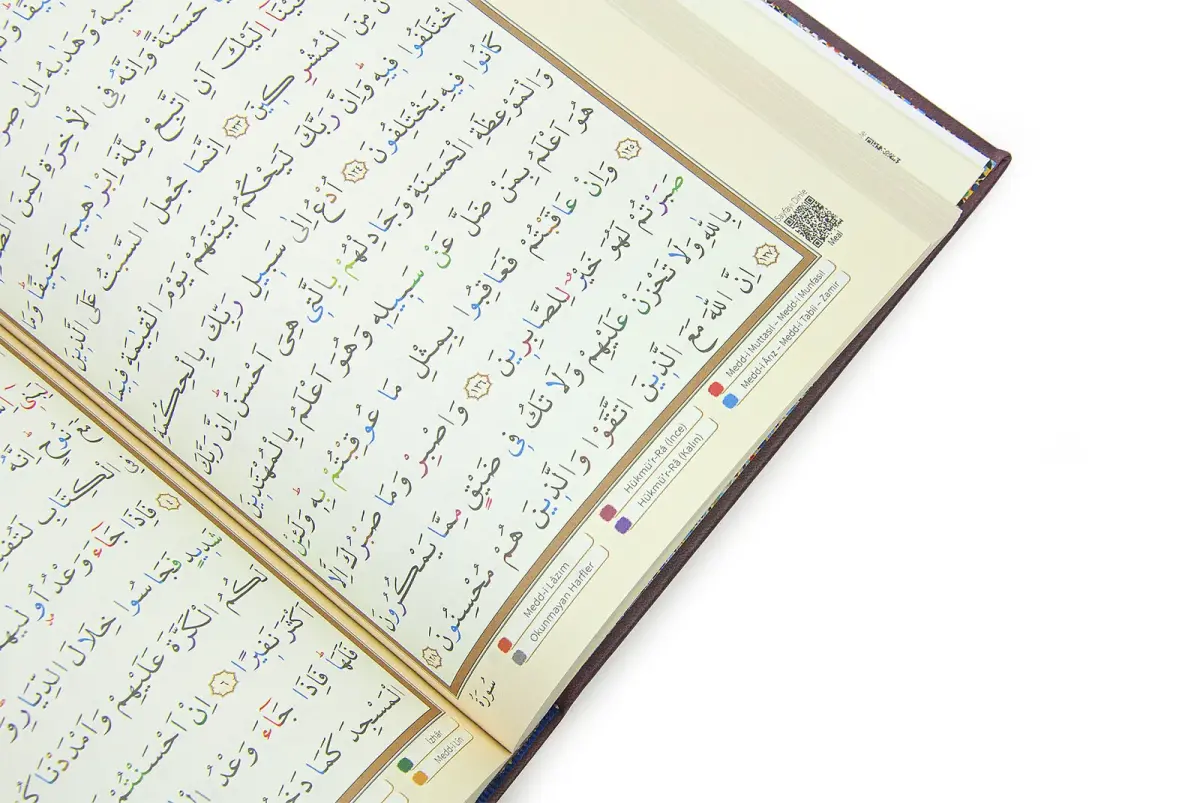 وَهَدٰيهُ اِلٰى
حَسَنَةً وَاِنَّهُ فِي الْاٰخِرَةِ لَمِنَ
اِلَيْكَ اَنِ اتَّبِعْ مِلَّةَ اِبْرٰهٖيمَ حَنٖيفًا وَمَا
مِنَ الْمُشْرِكٖينَ ﴿١٢٣﴾ اِنَّمَا جُعِلَ السَّبْتُ عَلَى الَّذٖينَ
اخْتَلَفُوا فٖيهِ وَاِنَّ رَبَّكَ لَيَحْكُمُ بَيْنَهُمْ يَوْمَ الْقِيٰمَةِ فٖيمَا
كَانُوا فٖيهِ يَخْتَلِفُونَ ﴿١٢٤﴾ اُدْعُ اِلٰى سَبٖيلِ رَبِّكَ بِالْحِكْمَةِ
وَالْمَوْعِظَةِ الْحَسَنَةِ وَجَادِلْهُمْ بِالَّتٖي هِيَ اَحْسَنُ اِنَّ رَبَّكَ
هُوَ اَعْلَمُ بِمَنْ ضَلَّ عَنْ سَبٖيلِهٖ وَهُوَ اَعْلَمُ بِالْمُهْتَدٖينَ
﴿١٢٥﴾ وَاِنْ عَاقَبْتُمْ فَعَاقِبُوا بِمِثْلِ مَا عُوقِبْتُمْ بِهٖ وَلَئِنْ
صَبَرْتُمْ لَهُوَ خَيْرٌ لِلصَّابِرٖينَ ﴿١٢٦﴾ وَاصْبِرْ وَمَا صَبْرُكَ اِلَّا
بِاللّٰهِ وَلَا تَحْزَنْ عَلَيْهِمْ وَلَا تَكُ فٖي ضَيْقٍ مِمَّا يَمْكُرُونَ
﴿١٢٧﴾ اِنَّ اللّٰهَ مَعَ الَّذٖينَ اتَّقَوْا وَالَّذٖينَ هُمْ مُحْسِنُونَ ﴿١٢٨﴾
Sayfayı Dinle
Meal
Medd-i Muttasıl – Medd-i Munfasıl
Medd-i Ârız – Medd-i Tabîî – Zamir
Hükmü'r-Râ (İnce)
Hükmü'r-Râ (Kalın)
Medd-i Lâzım
Okunmayan Harfler
سُورَةُ
مَعَ نُوحٍ اِنَّهُ
فِي الْكِتَابِ
﴿٤﴾ فَاِذَا جَٓاءَ وَعْدُ اُو۫لٰيهُمَا
شَدٖيدٍ فَجَاسُوا خِلَالَ الدِّيَارِ
لَكُمُ الْكَرَّةَ عَلَيْهِمْ وَاَمْدَدْنَاكُمْ
اَكْثَرَ نَفٖيرًا ﴿٦﴾ اِنْ اَحْسَنْتُمْ
فَلَهَا فَاِذَا جَٓاءَ وَعْدُ
الْمَسْجِدَ كَمَا
İzhâr
Medd-i Lîn